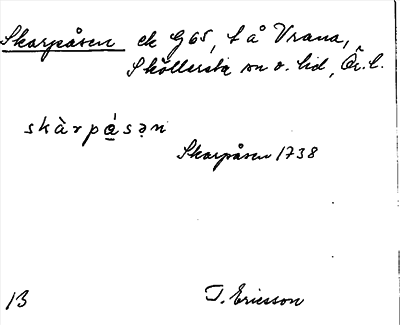 Skarpåsen ek G65, t å Vrana,
Sköllersta sn o. hd, Ör. l.
skàrpá̱sǝ̣n
Skarpåsen 1738
13 T. Ericsson